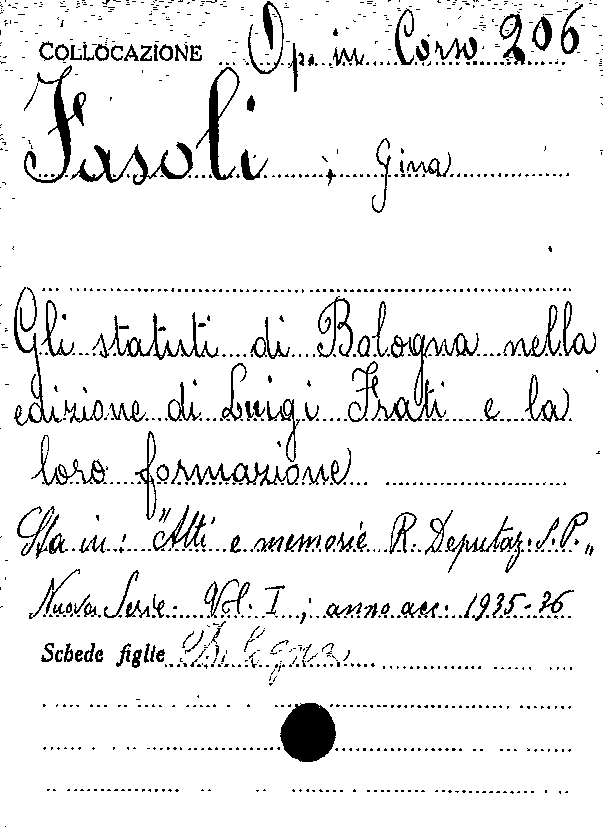 COLLOCAZIONE Op. in Corso 206
Fasoli ; Gina
Gli statuti di Bologna nella
edizione di Luigi Frati e la
loro formazione
Sta in: "Atti e memorie R. Deputaz. S. P.„
Nuova Serie. Vol. I ; anno acc. 1935-36
Schede figlie Bologna